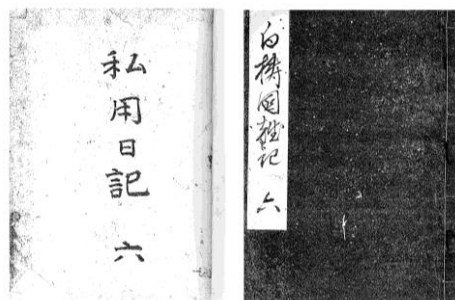 私用日記 六
白檮園雜記 六